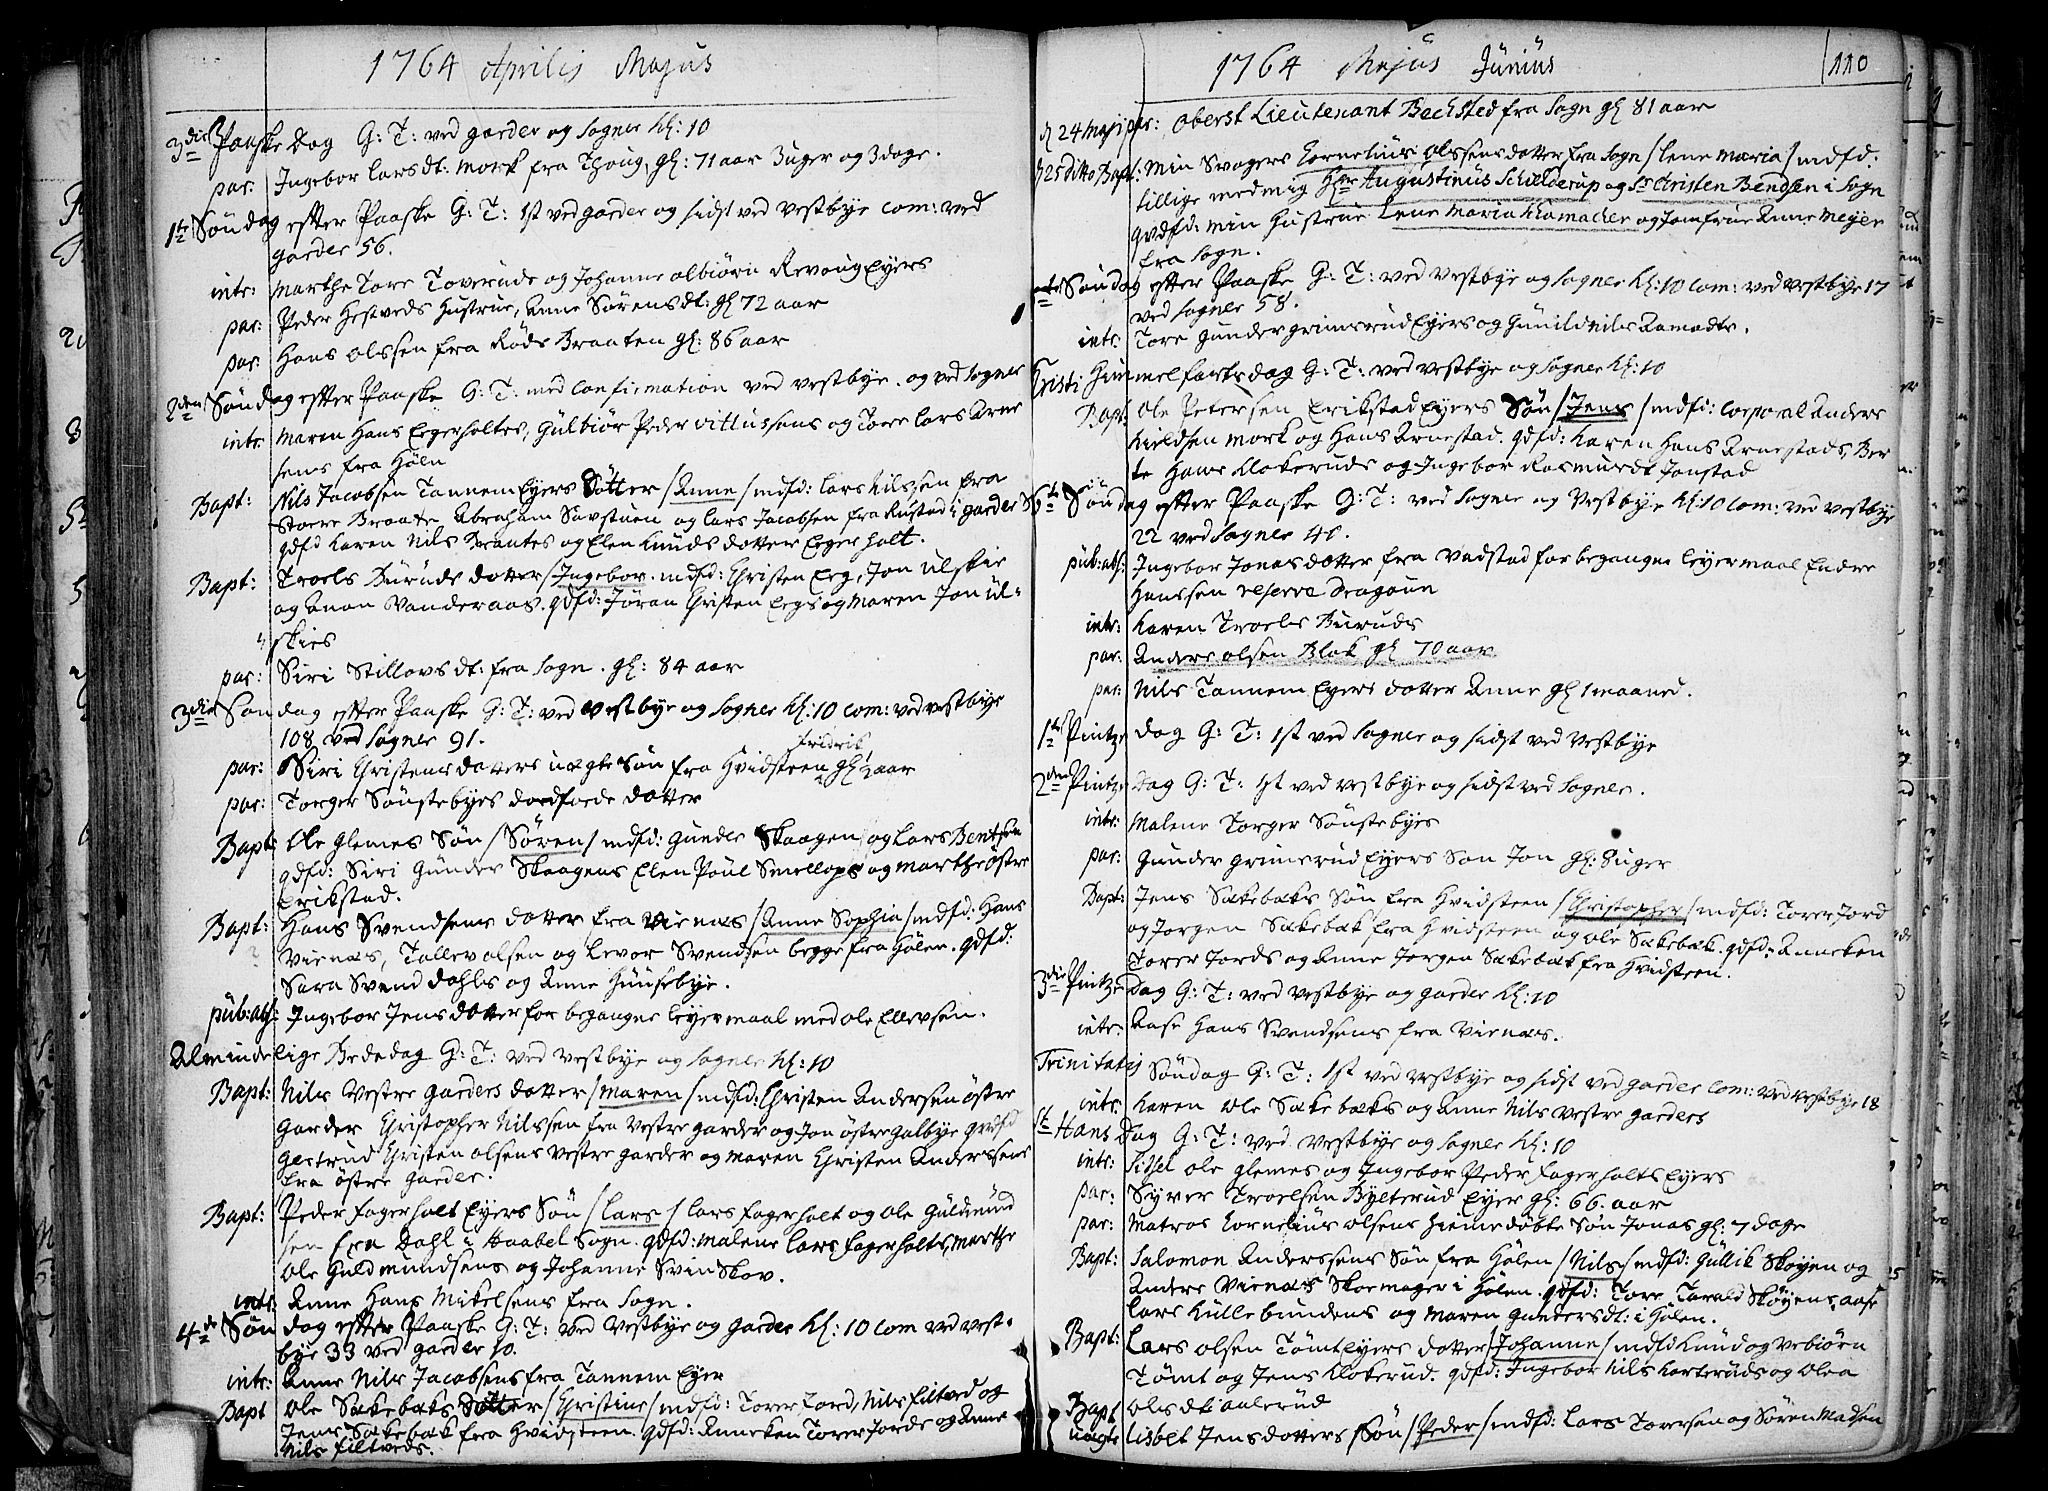 1764 Aprilis Majus
3die Paaske Dag G: T: ved garder og Sogner Kl: 10
par: Ingebor Larsdt: Mork fra Thoug, gl: 71 aar 3 uger og 3 dage.
1te Søndag efter Paaske G: T: 1st ved garder og sidst ved Vestbye Com: ved
garder 56.
intr: Marthe Tore Toverude og Johanne Albiørn Revoug Eyers
par: Peder Hestveds Hustrue, Anne Sørensdt: gl 72 aar
par: Hans Olssen fra Røds Braaten gl: 86 aar
2den Søndag efter Paaske G: T: med Confirmation ved Vestbye. og ved Sogner
intr: Maren Hans Egerholtes, Gulbiør Peder Vittussens og Tore Lars Arne
sens fra Hølen
Bapt: Nils Jacobsen Tannem Eyers Dotter / Anne / mdfd: Lars Nilssen fra
Store Braate Abraham Savstuen og Lars Jacobsen fra Rustad i garder S
qdfd Karen Nils Braates og Elen Knuds dotter Egerholt.
Bapt: Troels Buruds dotter / Ingebor. mdfd: Christen Eeg, Jon Ulskie
og Anon Vanderaas. qdfd: Jøran Christen Eegs og Maren Jon Ul-
skies
par: Siri Stillovsdt: fra Sogn. gl: 84 aar
3die Søndag efter Paaske G: T: ved Vestbye og Sogner Kl: 10 Com: ved Vestbye
108 ved Sogner 91.
Fridrik
par: Siri Christens dotters uægte Søn fra Hvidsteen gl 2 aar
par: Torger Sønstebyes dødføde dotter
Bapt: Ole Glemes Søn / Søren / mdfd: Gunder Skaagen og Lars Bentsen
qdfd: Siri Gunder Skaagens Elen Poul Smellops og Marthe Østre
Erikstad.
Bapt: Hans Svendsens dotter fra Viernæs / Anne Sophia / mdfd: Hans
Viernæs, Tollev Olsen og Levor Svendsen begge fra Hølen. qdfd:
Sara Svend Dahls og Anne Huusebye.
pub: abs: Ingebor Jens dotter for begangne leyermaal med Ole Ellevsen.
Almindelige Bededag G: T: ved Vestbye og Sogner Kl: 10
Bapt: Nils Vestre Garders dotter / Maren / mdfd: Christen Andersen Østre
Garder Christopher Nilssen fra Vestre garder og Jon Østre Galbye qvdfd
Gertrud Christen Olsens Vestre garder og Maren Christen Anderssens
fra Østre Garder.
Bapt: Peder Fagerholt Eyers Søn / Lars / Lars Fagerholt og Ole Guldmund
sen fra Dahl i Haabel Sogn. qdfd: Malene Lars Fagerholts, Marthe
Ole Guldmundsens og Johanne Svinskov.
intr: Anne Hans Mikelsens fra Sogn.
4de Søndag efter Paaske G: T: ved Vestbye og Garder Kl: 10 Com ved Vest-
bye 33 ved garder 10.
intr: Anne Nils Jacobsens fra Tannem Eyer
Bapt Ole Sækebæks Dotter / Christine / mdfd: Torer Jord, Nils Filtved og
Jens Sækebæk fra Hvidsteen. qdfd: Anneken Torer Jords og Anne
Nils Filtveds.
1764 Majus Junius 110
d 24 Maji par: Oberst Lieutenant Bechsted fra Sogn gl 81 aar
d 25 ditto Bapt: Min Svogers Cornelius Olssens dotter fra Sogn / Lene Maria / mdfd:
tillige med mig Hr Augustinus Schielderup og Sr Christen Bendsen i Sogn
qvdfd: min Hustrue Lene Maria Kramacher og Jomfrue Anne Meyer
fra Sogn.
Søndag efter Paaske G: T: ved Vestbye og Sogner Kl: 10 Com: ved Vestbye 17
ved Sogner 58.
intr: Tore Gunder Grimsrud Eyers og Gunild Nils Ramadts.
Kristi Himmelfarts dag G: T: ved Vestbye og Sogner Kl: 10
Bapt: Ole Petersen Erikstad Eyers Søn / Jens / mdfd: Corporal Anders
Kieldsen Mork og Hans Arnestad. qdfd: Karen Hans Arnestads, Ber
te Hans Klokeruds og Ingebor Rasmusdt Jonstad
6te Søndag efter Paaske G: T: ved Sogner og Vestbye Kl: 10 Com: ved Vestbye
22 ved Sogner 40.
pub: abs: Ingebor Jonas dotter fra Vadstad for begangne leyermaal Endre
Hanssen reserve Dragoun
intr: Karen Troels Buruds
par: Anders Olsen Blak gl 70 aar
par: Nils Tannem Eyers dotter Anne gl 1 maaned.
1te Pintze dag G: T: 1st ved Sogner og sidst ved Vestbye
2den Pintze Dag G: T: 1st ved Vestbye og sidst ved Sogner.
intr: Malene Torger Sønstebyes
par: Gunder Grimsrud Eyers Søn Jon gl: 8 uger
Bapt: Jens Sækebæks Søn fra Hvidsteen / Christopher / mdfd: Torer Jord
og Jørgen Sækebæk fra Hvidsteen og Ole Sækebæk. qdfd: Anneken
Torer Jords og Anne Jørgen Sækebæk fra Hvidsteen.
3die Pintze Dag G: T: ved Vestbye og garder Kl: 10
intr. Aase Hans Svendsens fra Viernæs.
Trinitatis Søndag G: T: 1st ved Vestbye og sidst ved garder Com: ved Vestbye 18
intr. Karen Ole Sækebæks og Anne Nils Vestre garders
St Hans Dag G: T: ved Vestbye og Sogner Kl: 10
intr: Sissel Ole Glemes og Ingebor Peder Fagerholts Eyers
par: Syver Troelsen Bylterud Eyer gl: 66. aar
par: Matros Cornelius Olsens hiemedøbte Søn Jonas gl: 7 dage
Bapt: Salomon Anderssens Søn fra Hølen / Nils / mdfd: Gullik Skøyen og
Anders Viernæs Skomager i Hølen. qdfd: Tore Torald Skøyens, Aase
Lars Kullebundens og Maren Gundersdt: i Hølen.
Bapt: Lars Olsen Tømt Eyers dotter / Johanne / mdfd Knud og Vebiørn
Tømt og Jens Klokerud. qdfd: Ingebor Nils Korteruds og Olea
Olsdt: Aalerud
Bapt uægte Lisbet Jensdotters Søn / Peder / mdfd: Lars Toresen og Søren Madsen